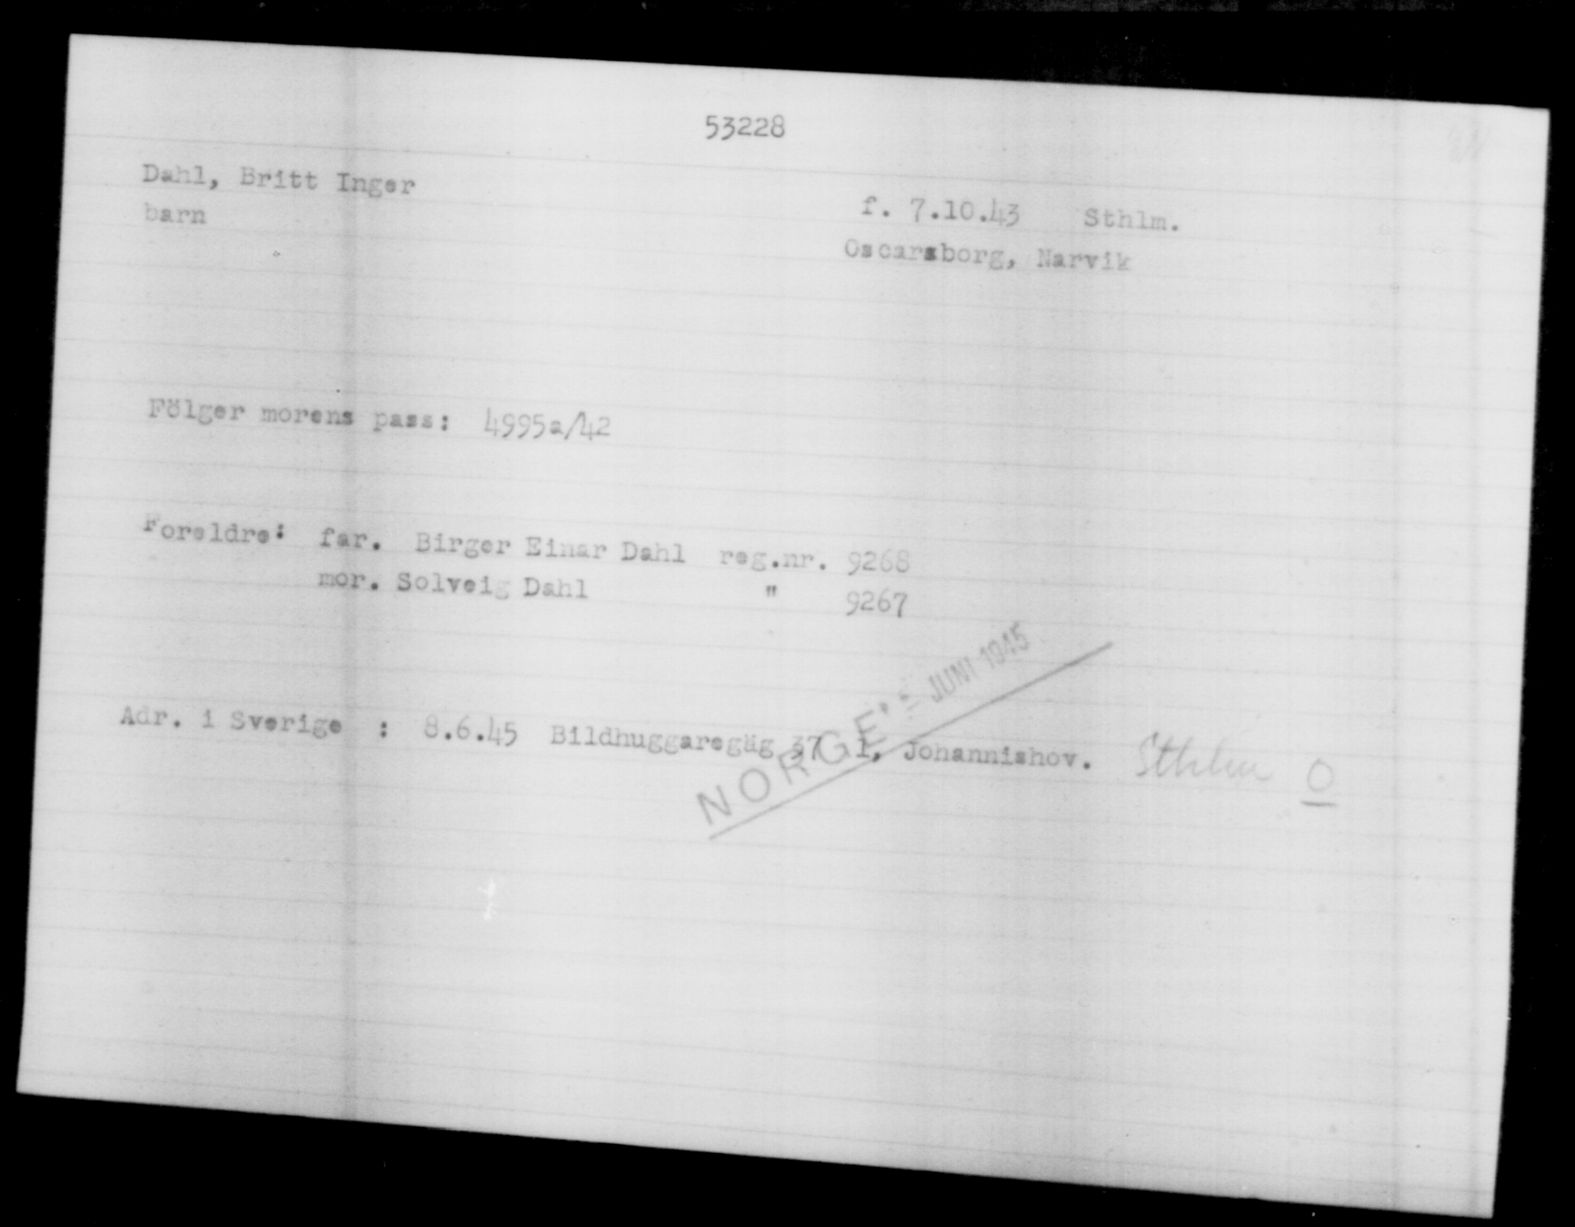 53228
Dahl, Britt Inger
f. 7.10.43 Sthlm.
barn
Oscarsborg, Narvik
Fölger morens pass: 4995a/42
Foreldre: far. Birger Einar Dahl reg.nr. 9268
mor. Solveig Dahl " 9267
JUNI 1945
NORGE
Adr. i Sverige : 8.6.45 Bildhuggaregäg 37 1, Johannishov. Sthlm O